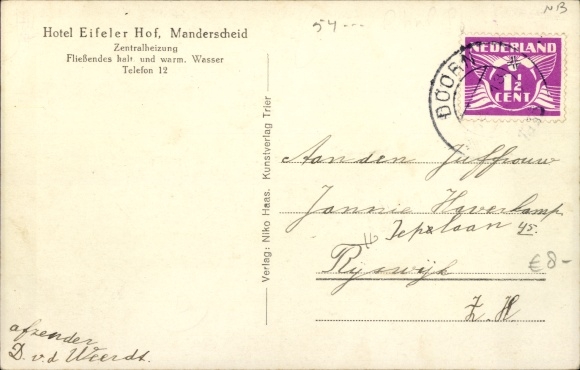 NB
54---
Hotel Eifeler Hof, Manderscheid
Zentralheizung
Fließendes kalt und warm. Wasser
Telefon 12
NEDERLAND
1½
CENT
DOORN
Verlag: Niko Haas. Kunstverlag Trier
Aan den Juffrouw
Jannie Haverkamp
Iepelaan 45.
Ryswijk
Z. H
€8-
afzender
D. v.d Weerdt.